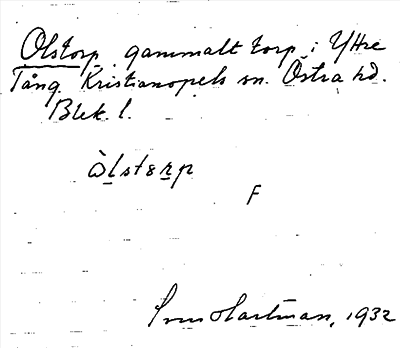 Olstorp gammalt torp i Yttre
Tång. Kristianopels sn. Östra hd.
Blek. l.
òlstɛrp
F
Sven Hartman, 1932